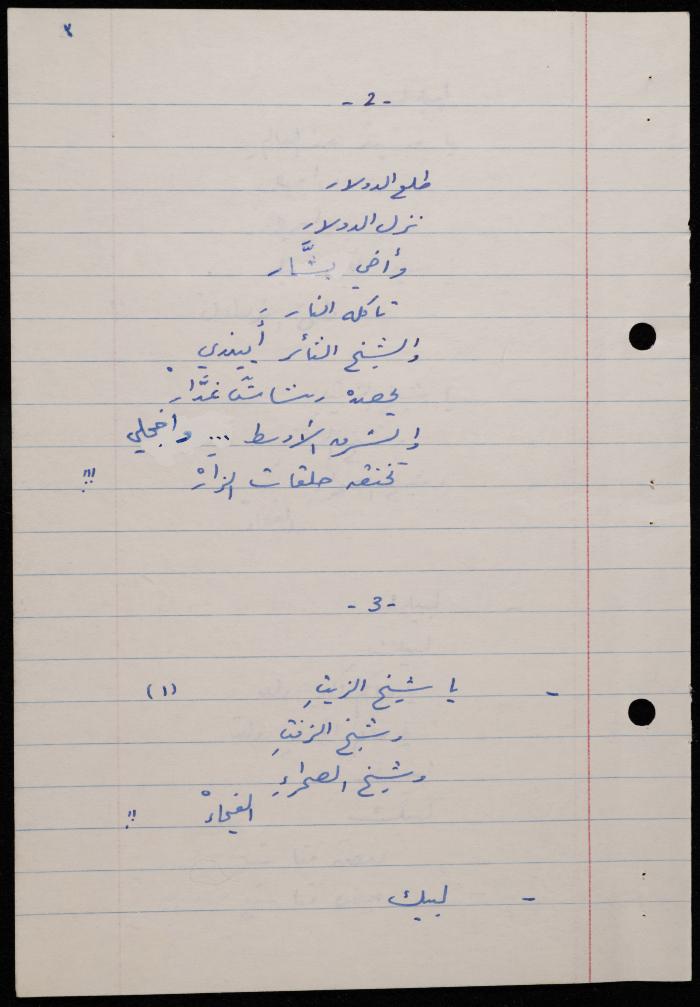 ٣
- 2 -
طلع الدولار
نزل الدولار
وأخي بشَّار
تأكله النار
والشيخ الثائر أيفندي
يحصدهْ رشاشٌ غدَّارْ
والشرق الأوسط ... واخجلي
تخنقه حلقات الزارْ !!!
- 3 -
- يا شيخ الزيتِ (١)
وشيخ الزفتِ
وشيخ الصحراءِ
الفيحاءْ !!
- لبيك